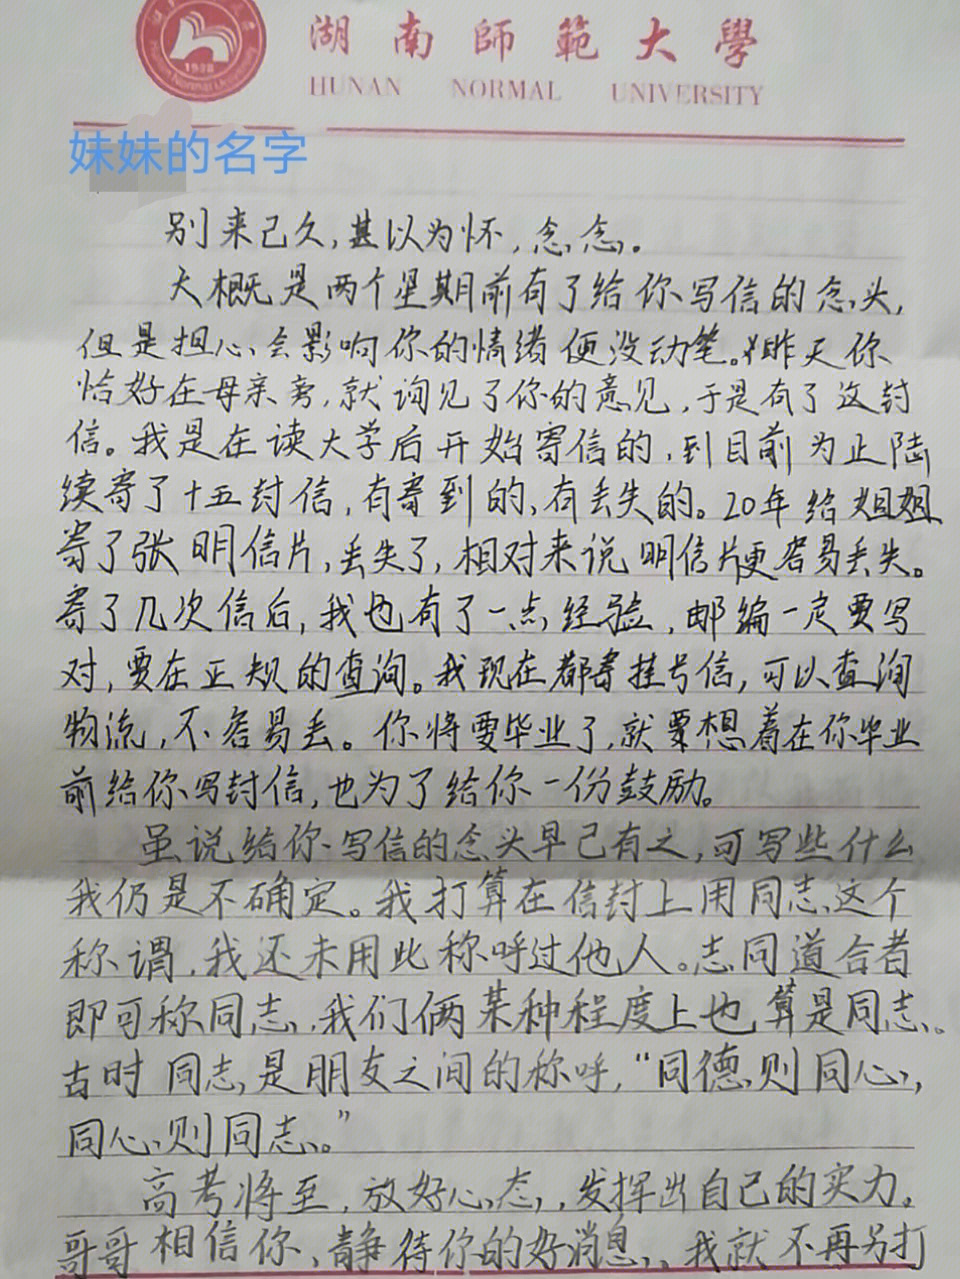 1938
湖南師範大學
HUNAN NORMAL UNIVERSITY
妹妹的名字
别来已久,甚以为怀,念念。
大概是两个星期前有了给你写信的念头,
但是担心会影响你的情绪便没动笔。昨天你
恰好在母亲旁,就询见了你的意见,于是有了这封
信。我是在读大学后开始寄信的,到目前为止陆
续寄了十五封信,有寄到的,有丢失的。20年给姐姐
寄了张明信片,丢失了,相对来说明信片更容易丢失。
寄了几次信后,我也有了一点经验,邮编一定要写
对,要在正规的查询。我现在都寄挂号信,可以查询
物流,不容易丢。你将要毕业了,就要想着在你毕业
前给你写封信,也为了给你一份鼓励。
虽说给你写信的念头早已有之,可写些什么
我仍是不确定。我打算在信封上用同志这个
称谓,我还未用此称呼过他人。志同道合者
即可称同志,我们俩某种程度上也算是同志。
古时同志是朋友之间的称呼,“同德则同心,
同心则同志。”
高考将至,放好心态,发挥出自己的实力。
哥哥相信你,静待你的好消息,我就不再另打